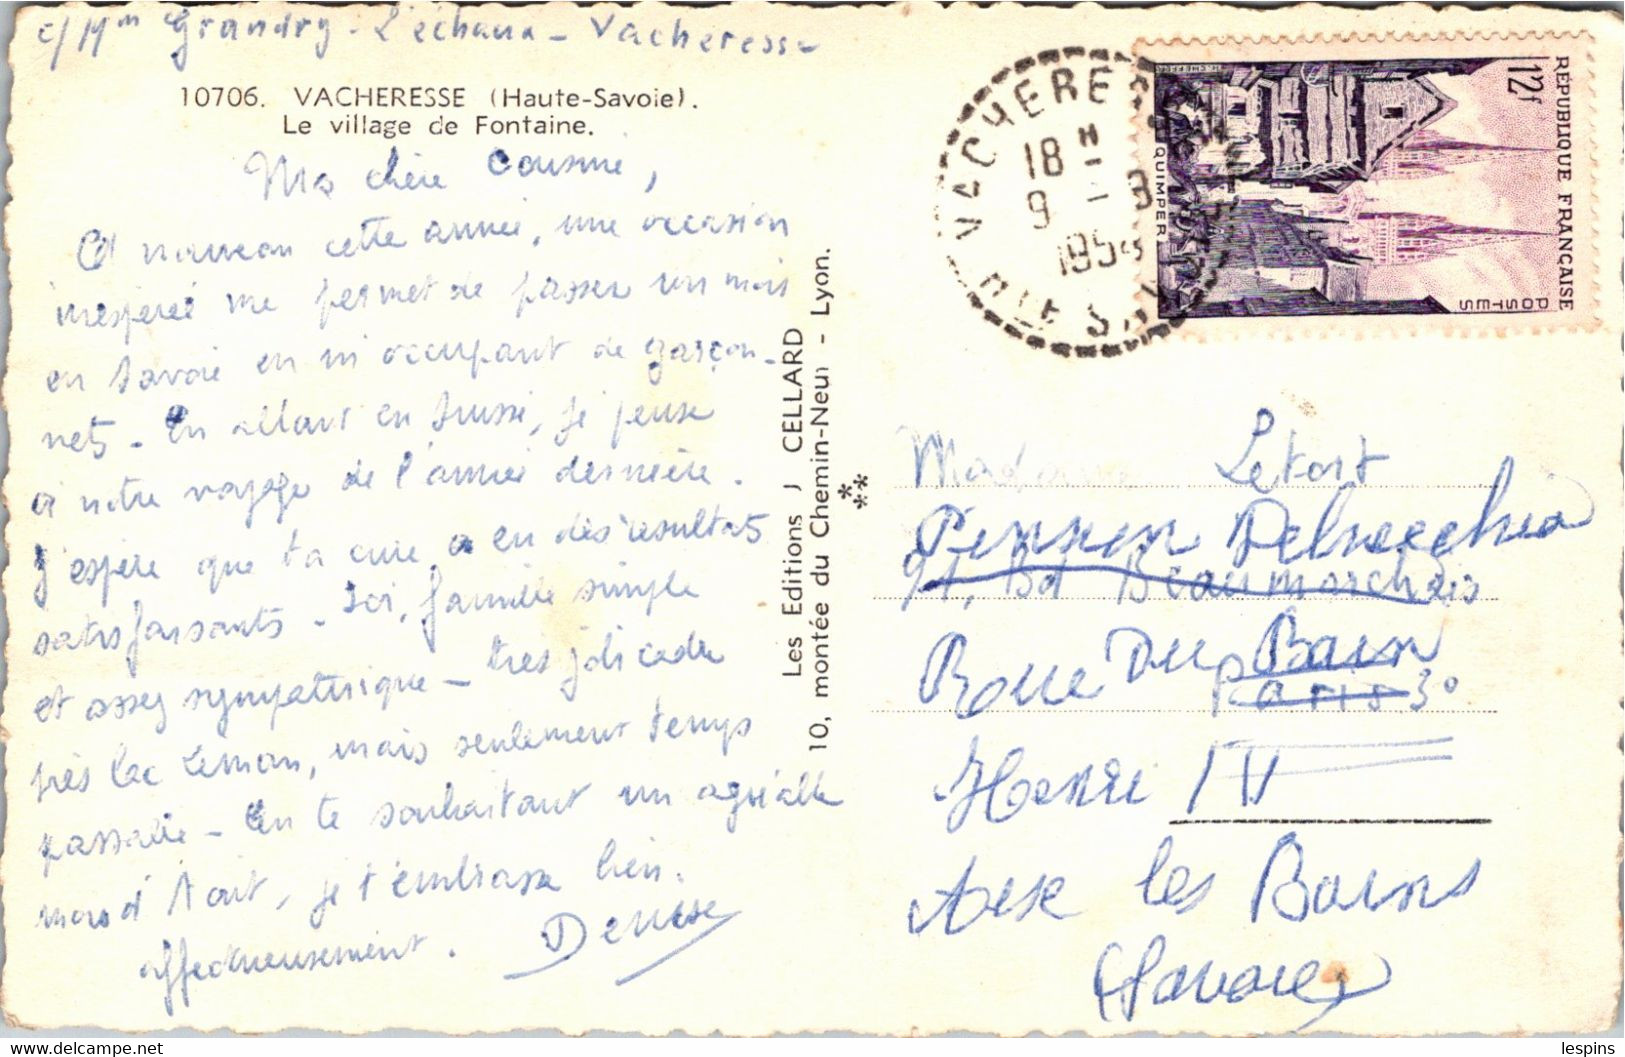 c/ Mm Grandry - L'échaux - Vacheresse
10706. VACHERESSE (Haute-Savoie).
Le village de Fontaine.
Ma chère Cousine,
A nouveau cette année, une occasion
inespérée me permet de passer un mois
en Savoie en m'occupant de garçon-
nets - En allant en Suisse, je pense
à notre voyage de l'année dernière.
J'espère que ta cure a eu des résultats
satisfaisants - Ici, famille simple
et assez sympathique - très joli cadre
près lac Léman, mais seulement temps
passable - En te souhaitant un agréable
mois d'Août, je t'embrasse bien
affectueusement. Denise
Les Editions J CELLARD
10, montée du Chemin-Neuf - Lyon.
VACHERESSE
HTE SAVOIE
18 H
9 - 8
195
12f
RÉPUBLIQUE FRANÇAISE
POSTES
QUIMPER
Madame Letort
Delvecchio
91, Bd Beaumarchais
Roue Du Bain
Paris 3°
Henri IV
Aix les Bains
(Savoie)
lespins